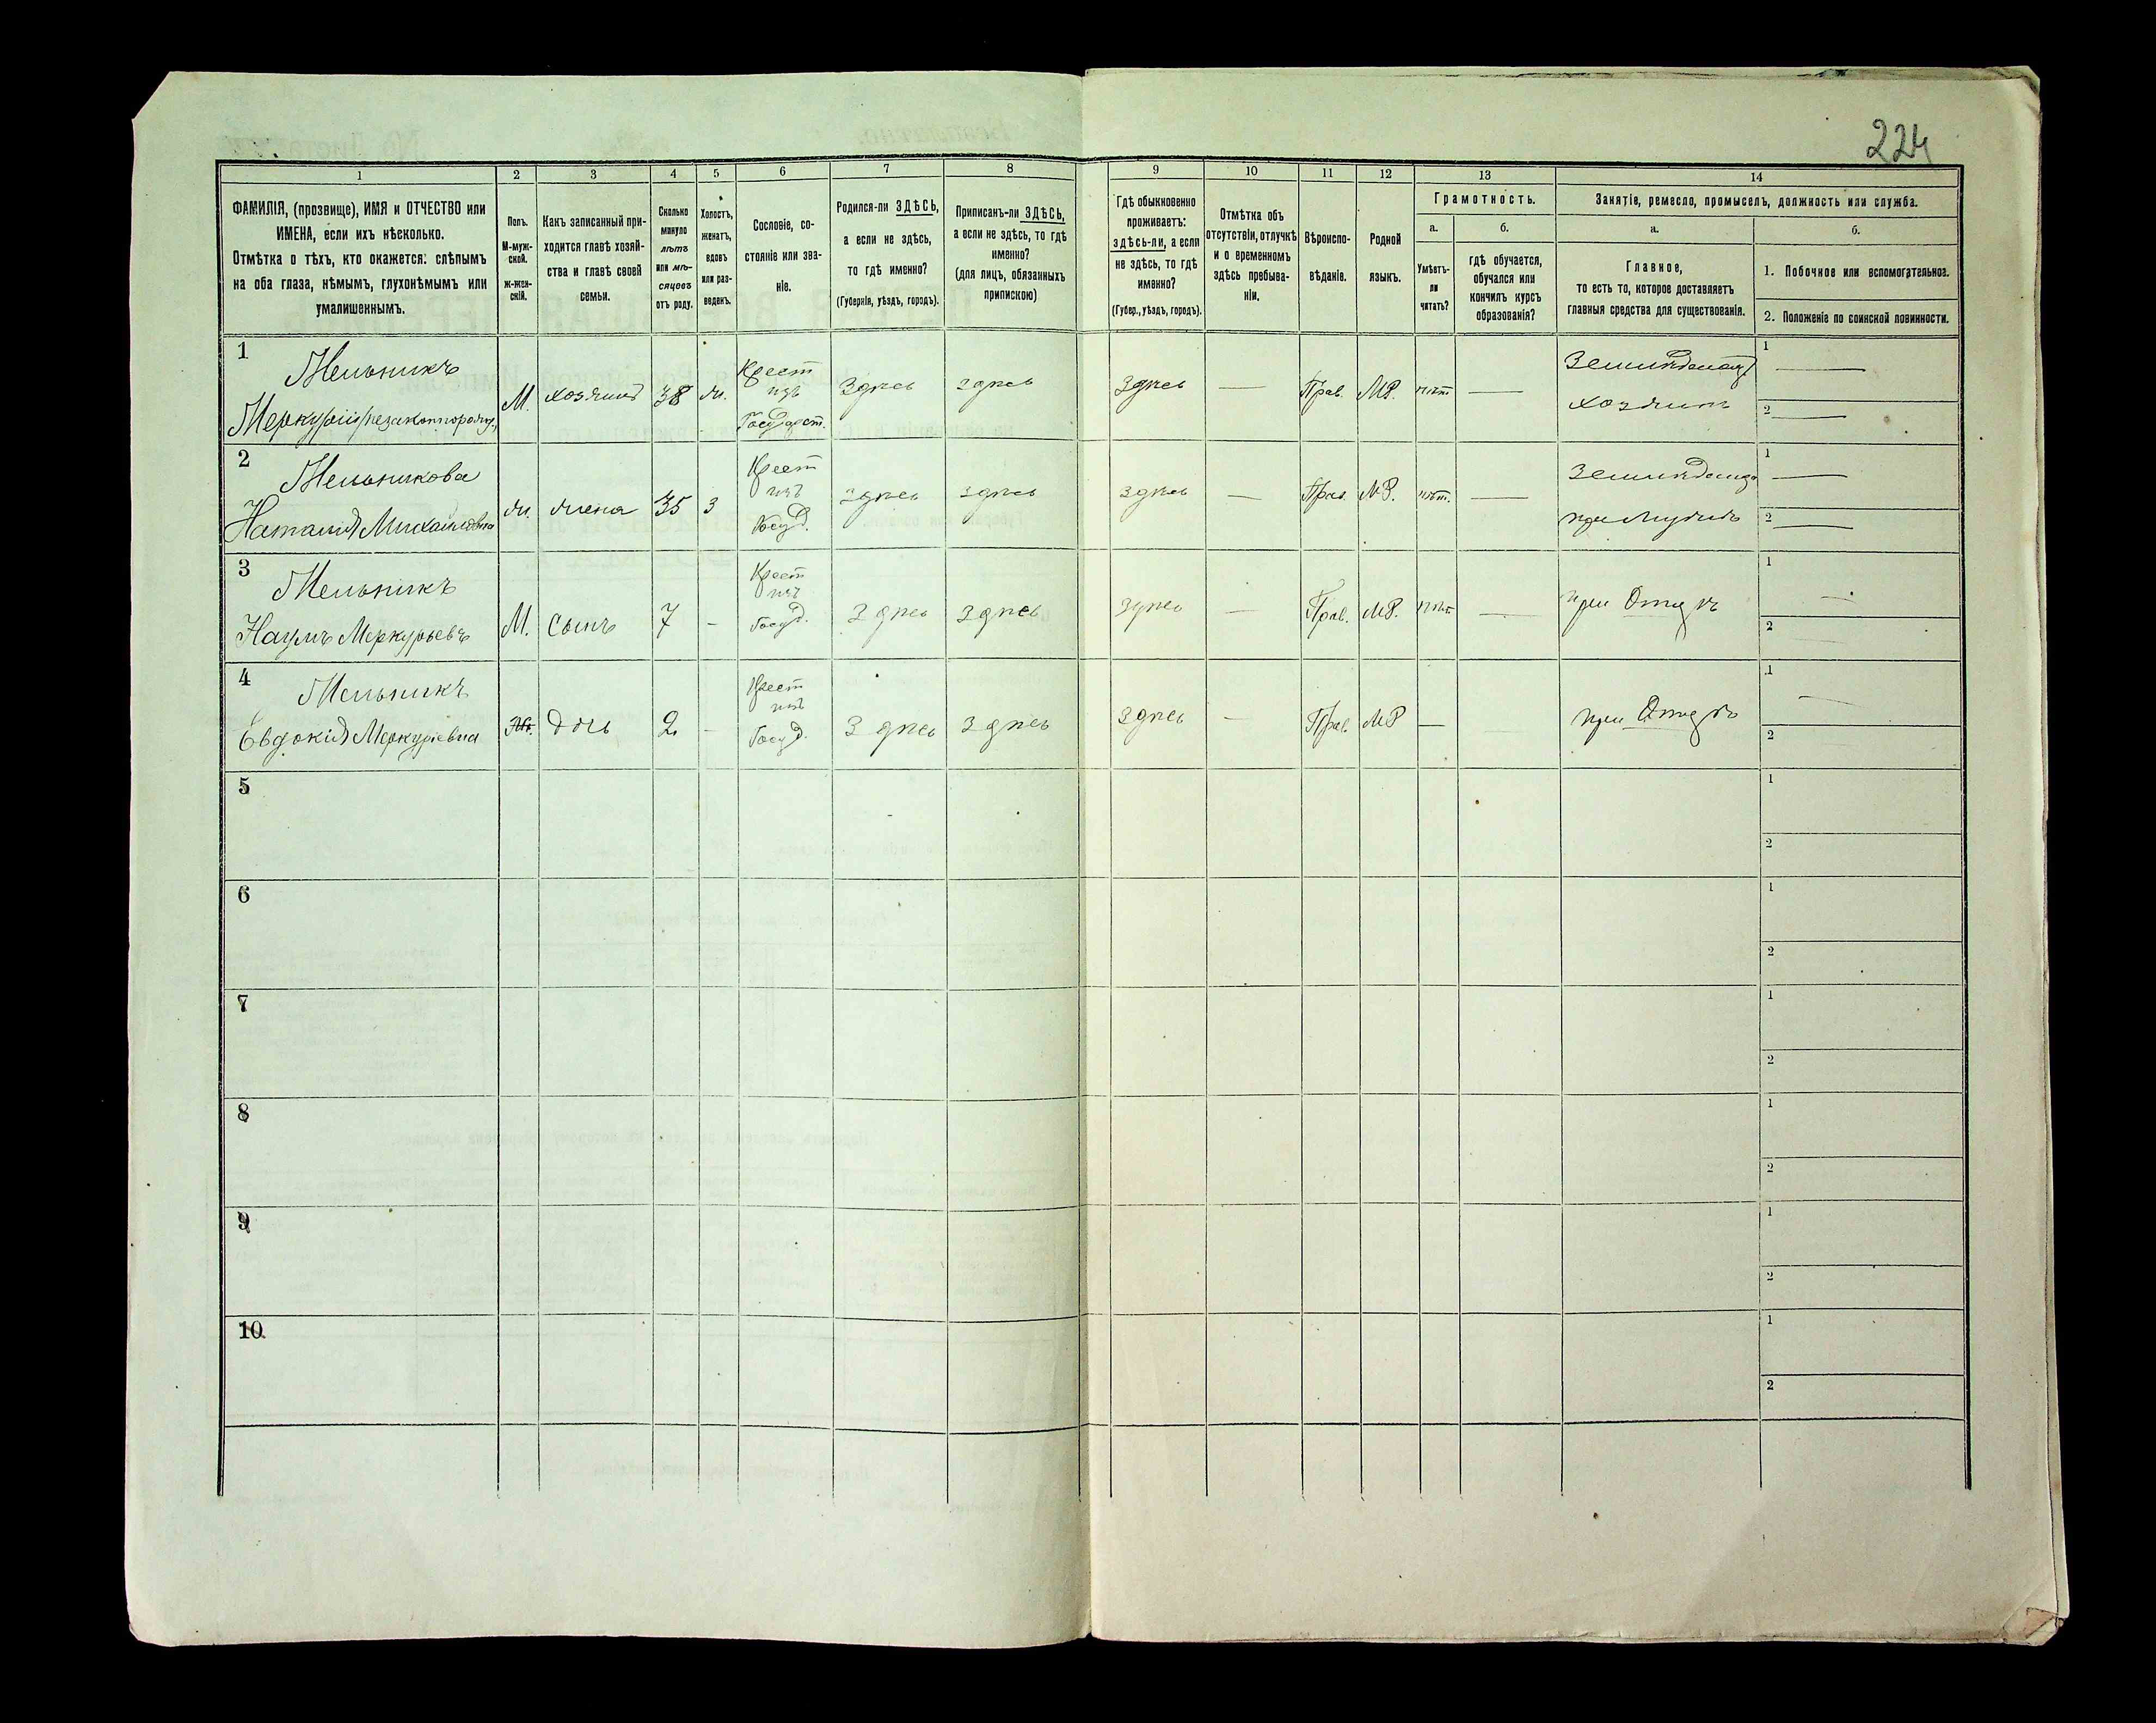 224
1 2 3 4 5 6 7 8 9 10 11 12 13 14
ФАМИЛІЯ, (прозвище), ИМЯ и ОТЧЕСТВО или
ИМЕНА, если ихъ нѣсколько.
Отмѣтка о тѣхъ, кто окажется: слѣпымъ
на оба глаза, нѣмымъ, глухонѣмымъ или
умалишеннымъ.
Полъ.
М-муж-
ской.
ж-жен-
скій.
Какъ записанный при-
ходится главѣ хозяй-
ства и главѣ своей
семьи.
Сколько
минуло
лѣтъ
или мѣ-
сяцевъ
отъ роду.
Холостъ,
женатъ,
вдовъ
или раз-
веденъ.
Сословіе, со-
стояніе или зва-
ніе.
Родился-ли ЗДѢСЬ,
а если не здѣсь,
то гдѣ именно?
(Губернія, уѣздъ, городъ).
Приписанъ-ли ЗДѢСЬ,
а если не здѣсь, то гдѣ
именно?
(для лицъ, обязанныхъ
припискою)
Гдѣ обыкновенно
проживаетъ:
здѣсь-ли, а если
не здѣсь, то гдѣ
именно?
(Губер., уѣздъ, городъ).
Отмѣтка объ
отсутствіи, отлучкѣ
и о временномъ
здѣсь пребыва-
ніи.
Вѣроиспо-
вѣданіе.
Родной
языкъ.
Грамотность.
а.
Умѣетъ-
ли
читать?
б.
гдѣ обучается,
обучался или
кончилъ курсъ
образованія?
Занятіе, ремесло, промыселъ, должность или служба.
а.
Главное,
то есть то, которое доставляетъ
главныя средства для существованія.
б.
1. Побочное или вспомогательное.
2. Положеніе по воинской повинности.
1
Мельникъ
Меркурій
М. хозяинъ 38 ж.
Крест
изъ
Государст.
Здѣсь здѣсь здѣсь — Прав. МР. нѣтъ —
хозяинъ
1 —
2 —
2
Мельникова
Наталія Михайловна
ж. жена 35 з
Крест
изъ
Госуд.
здѣсь здѣсь здѣсь — Прав. МР. нѣт. —
при мужѣ
1 —
2 —
3
Мельникъ
Наумъ Меркурьевъ
М. сынъ 7 -
Крест
изъ
Госуд.
здѣсь здѣсь здѣсь — Прав. МР. нѣт —
при Отцѣ
1 —
2
4
Мельникъ
Евдокія Меркуріевна
Ж. дочь 2 -
Крест
изъ
Госуд.
здѣсь здѣсь здѣсь — Прав. МР —
при Отцѣ
1 —
2
5 1
2
6 1
2
7 1
2
8 1
2
9 1
2
10 1
2